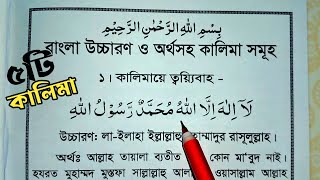 بِسْمِ اللهِ الرَّحْمٰنِ الرَّحِيْمِ
বাংলা উচ্চারণ ও অর্থসহ কালিমা সমূহ
৫টি
কালিমা
১। কালিমায়ে ত্বয়্যিবাহ -
لَآ اِلٰهَ اِلَّا اللهُ مُحَمَّدٌ رَّسُوْلُ اللهِ
উচ্চারণ: লা-ইলাহা ইল্লাল্লাহু মুহাম্মাদুর রাসূলুল্লাহ।
অর্থঃ আল্লাহ তায়ালা ব্যতীত কোন মা'বুদ নাই।
হযরত মুহাম্মদ মুস্তফা সাল্লাল্লাহু আলা ওয়াসাল্লাম আল্লাহ